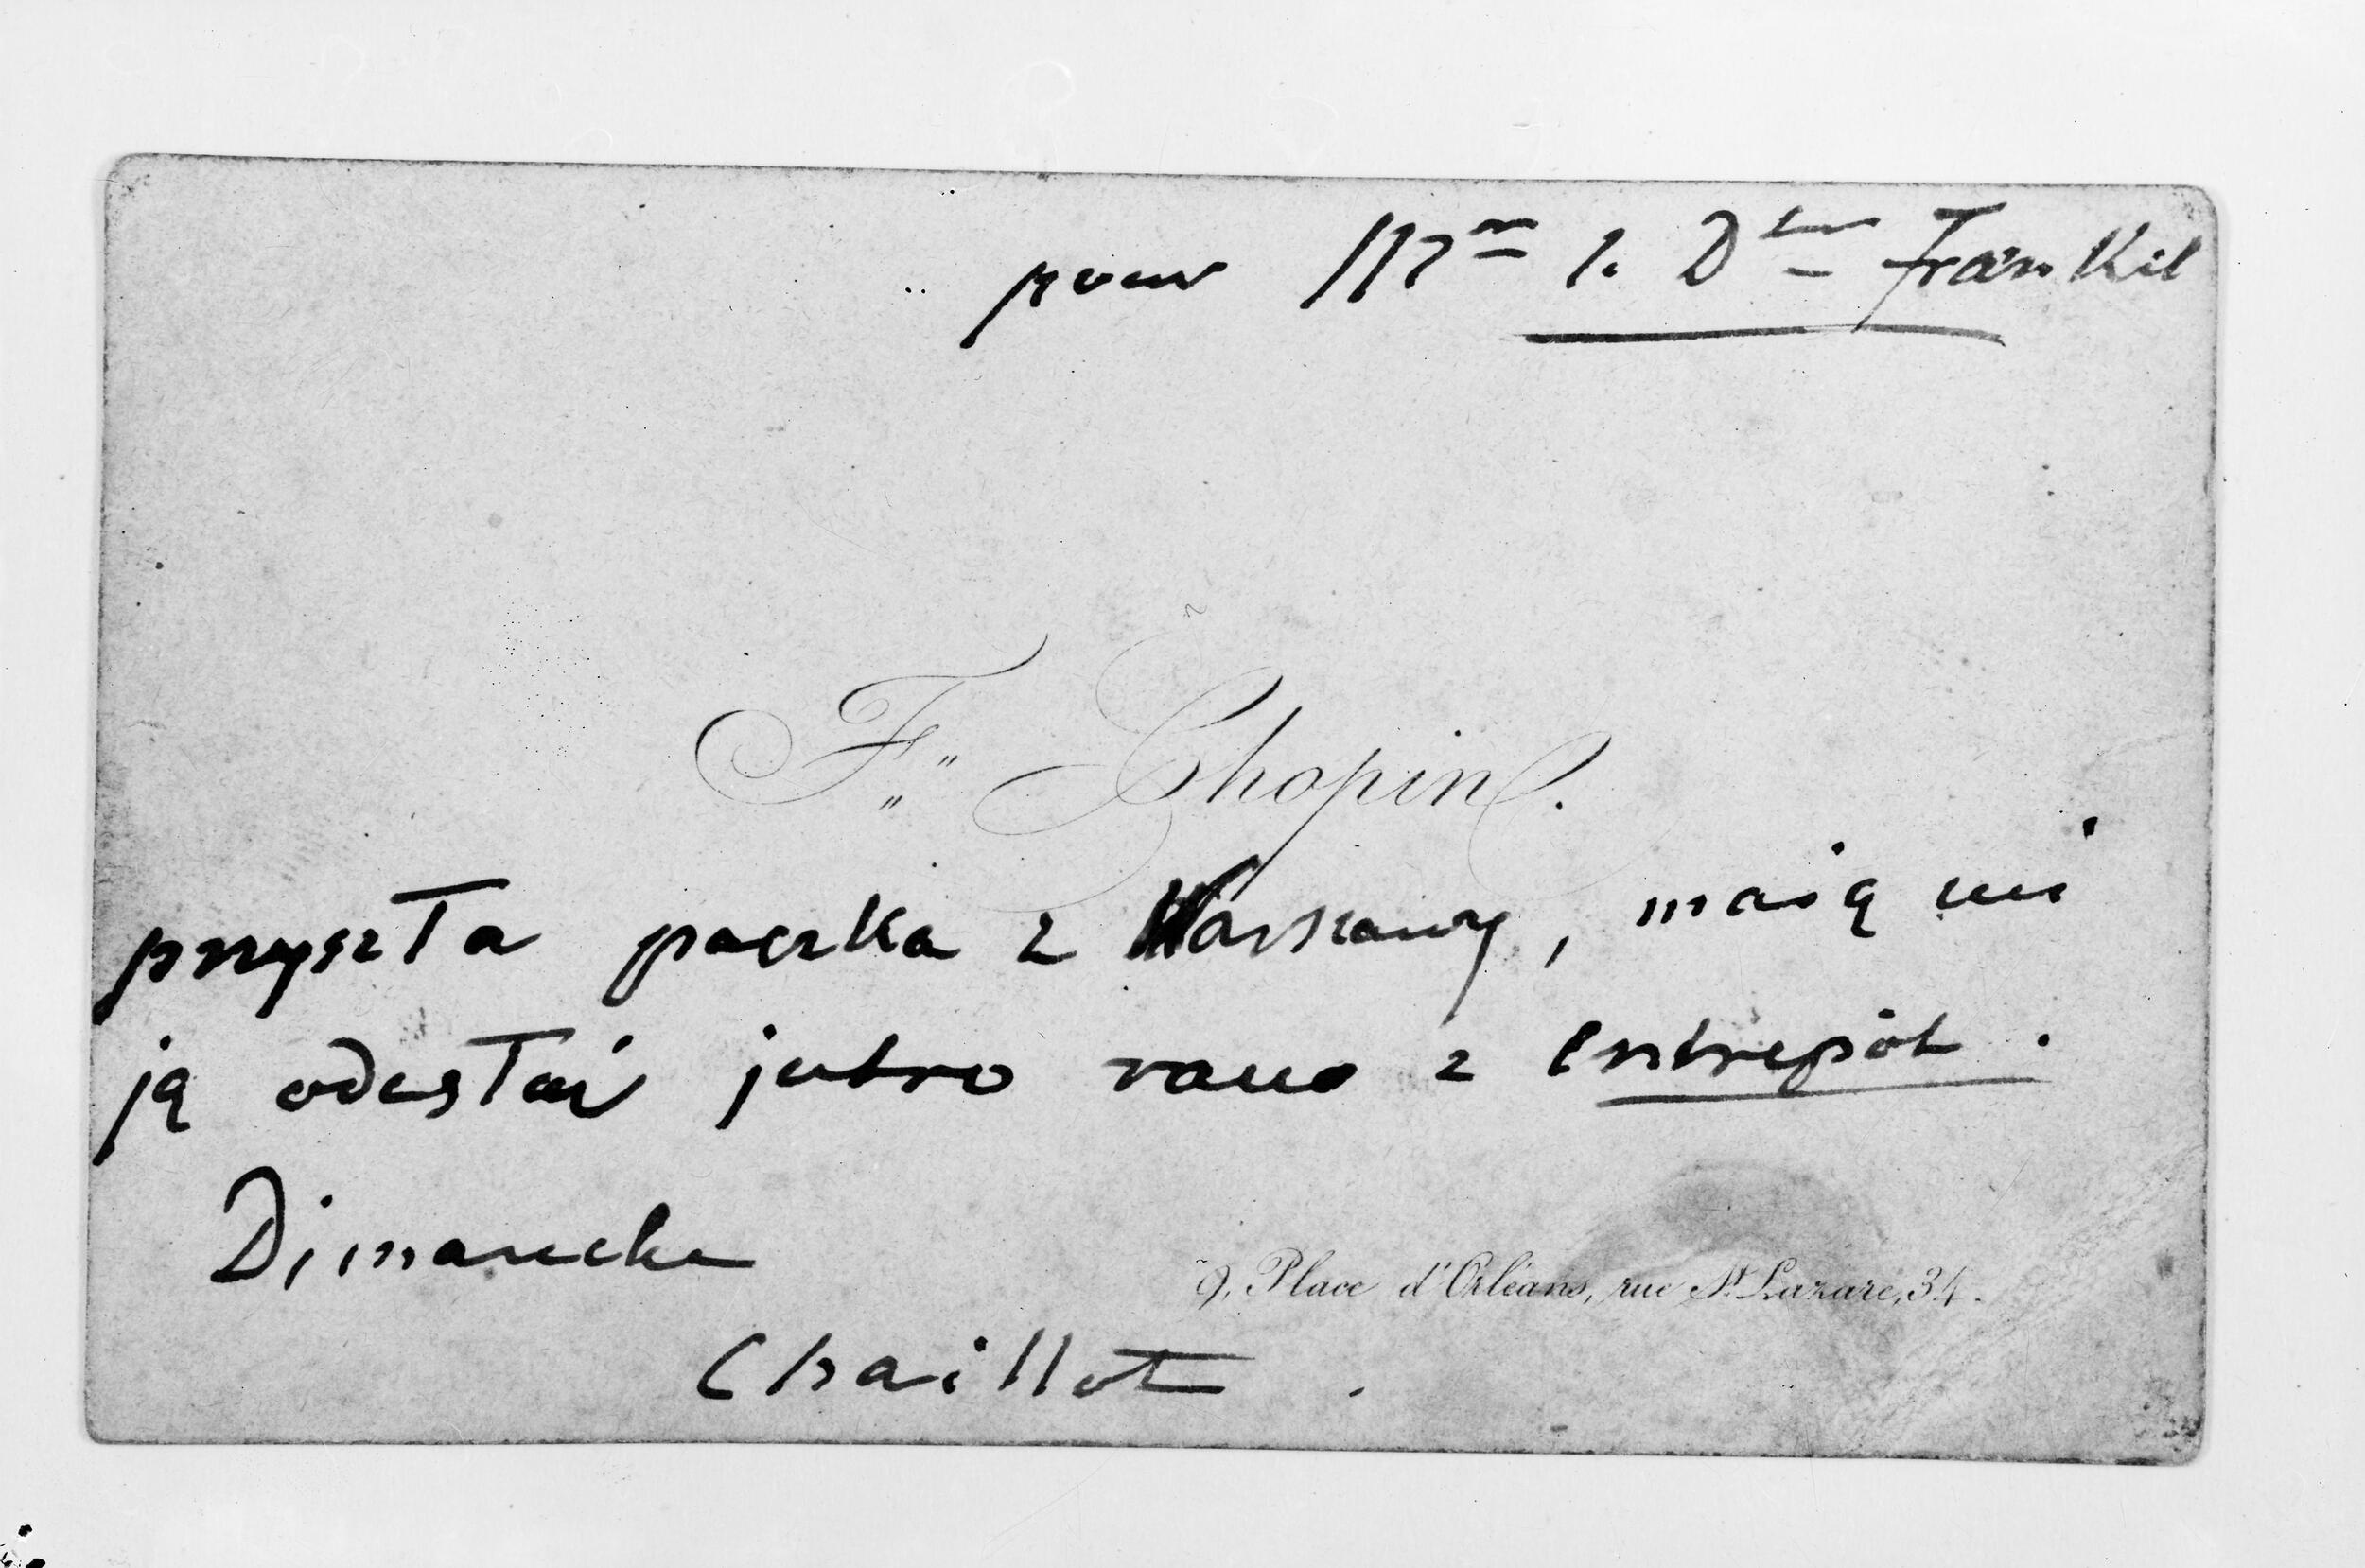 pour Mr l. Dteur Fränkel
F. Chopin.
przyszła paczka z Warszawy, maią mi
ją odesłać jutro rano z Entrepôt.
Dimanche
9, Place d'Orléans, rue St. Lazare, 34.
Chaillot.